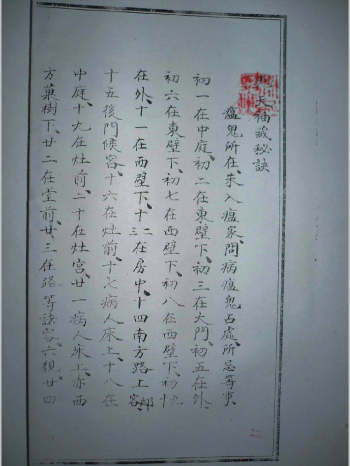 天袖藏秘訣
瘟鬼所在、来入瘟家、問病瘟鬼占處、所忌等事
初一在中庭、初二在東壁下、初三在大門、初五在外、
初六在東壁下、初七在西壁下、初八在西壁下、初九
在外、十一在西壁下、十二三在房中、十四南方路上
十五後門候客、十六在灶前、十七病人床上、十八在
中庭、十九在灶前、二十在灶宫、廿一病人床上、亦西
方菓樹下、廿二在堂前、廿三在路、等諸客、六根、廿四